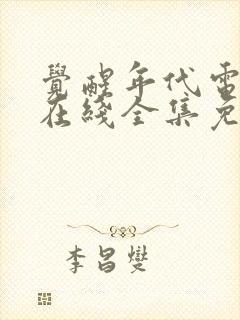 覺醒年代電
在綫全集免
李昌燮